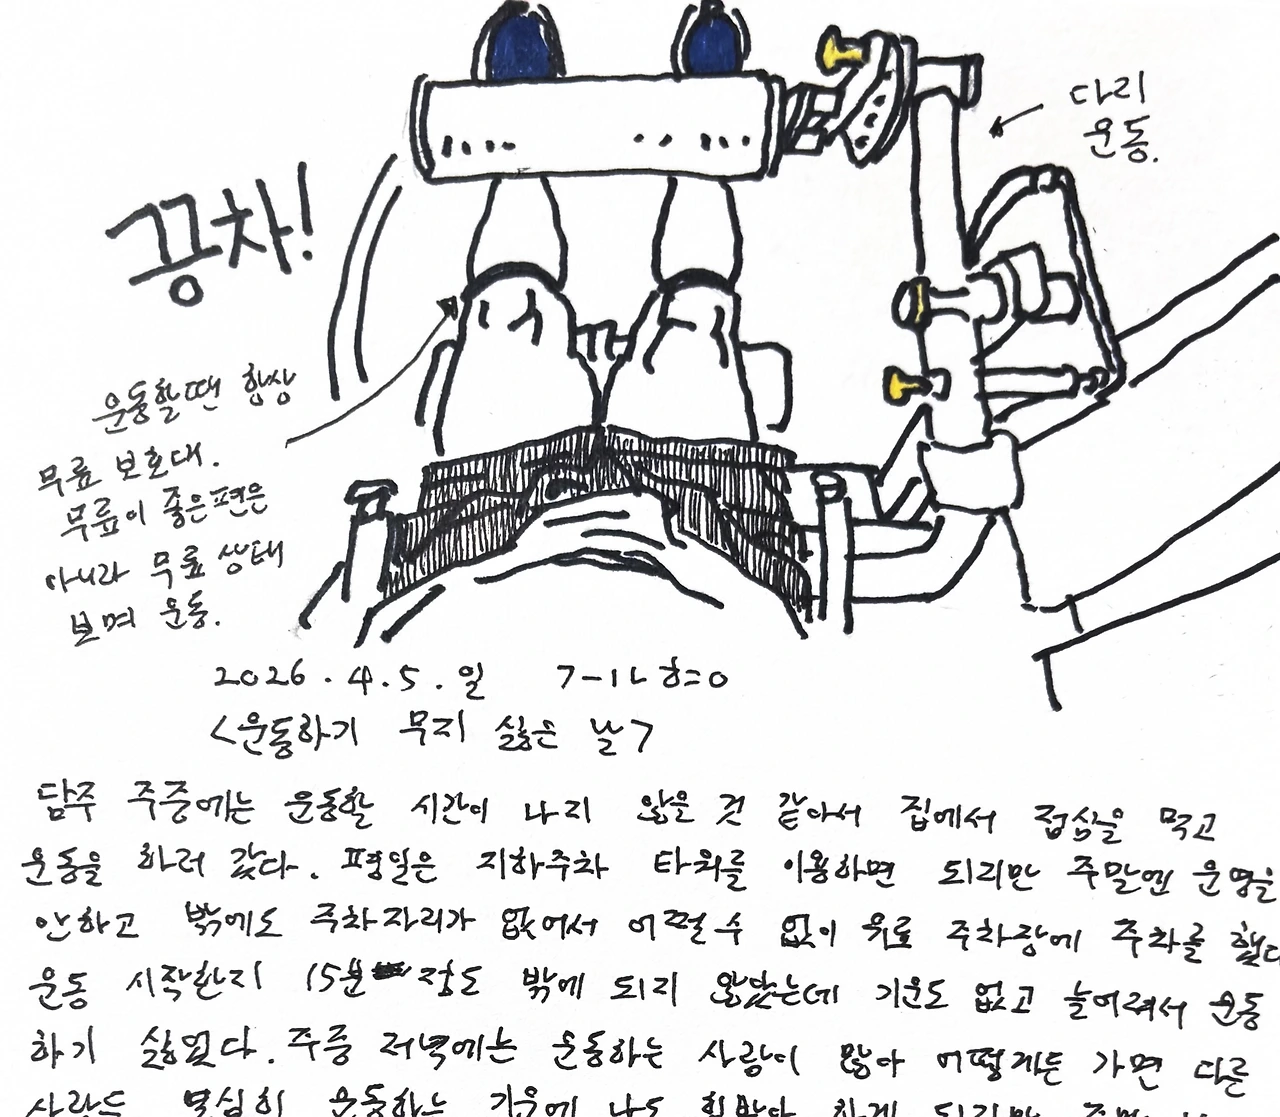 다리
운동.
끙차!
운동할때 항상
무릎 보호대.
무릎이 좋은편은
아니라 무릎 상태
보며 운동.
2026.4.5.일
<운동하기 무지 싫은 날>
담주 주중에는 운동할 시간이 나지 않을 것 같아서 집에서 점심을 먹고
운동을 하러 갔다. 평일은 지하주차 타워를 이용하면 되지만 주말엔 운영을
안하고 밖에도 주차자리가 없어서 어쩔수 없이 유료 주차장에 주차를 했다
운동 시작한지 15분 정도 밖에 되지 않았는데 기운도 없고 늘어져서 운동
하기 싫었다. 주중 저녁에는 운동하는 사람이 많아 어떻게든 가면 다른
사람들 열심히 운동하는 기운에 나도